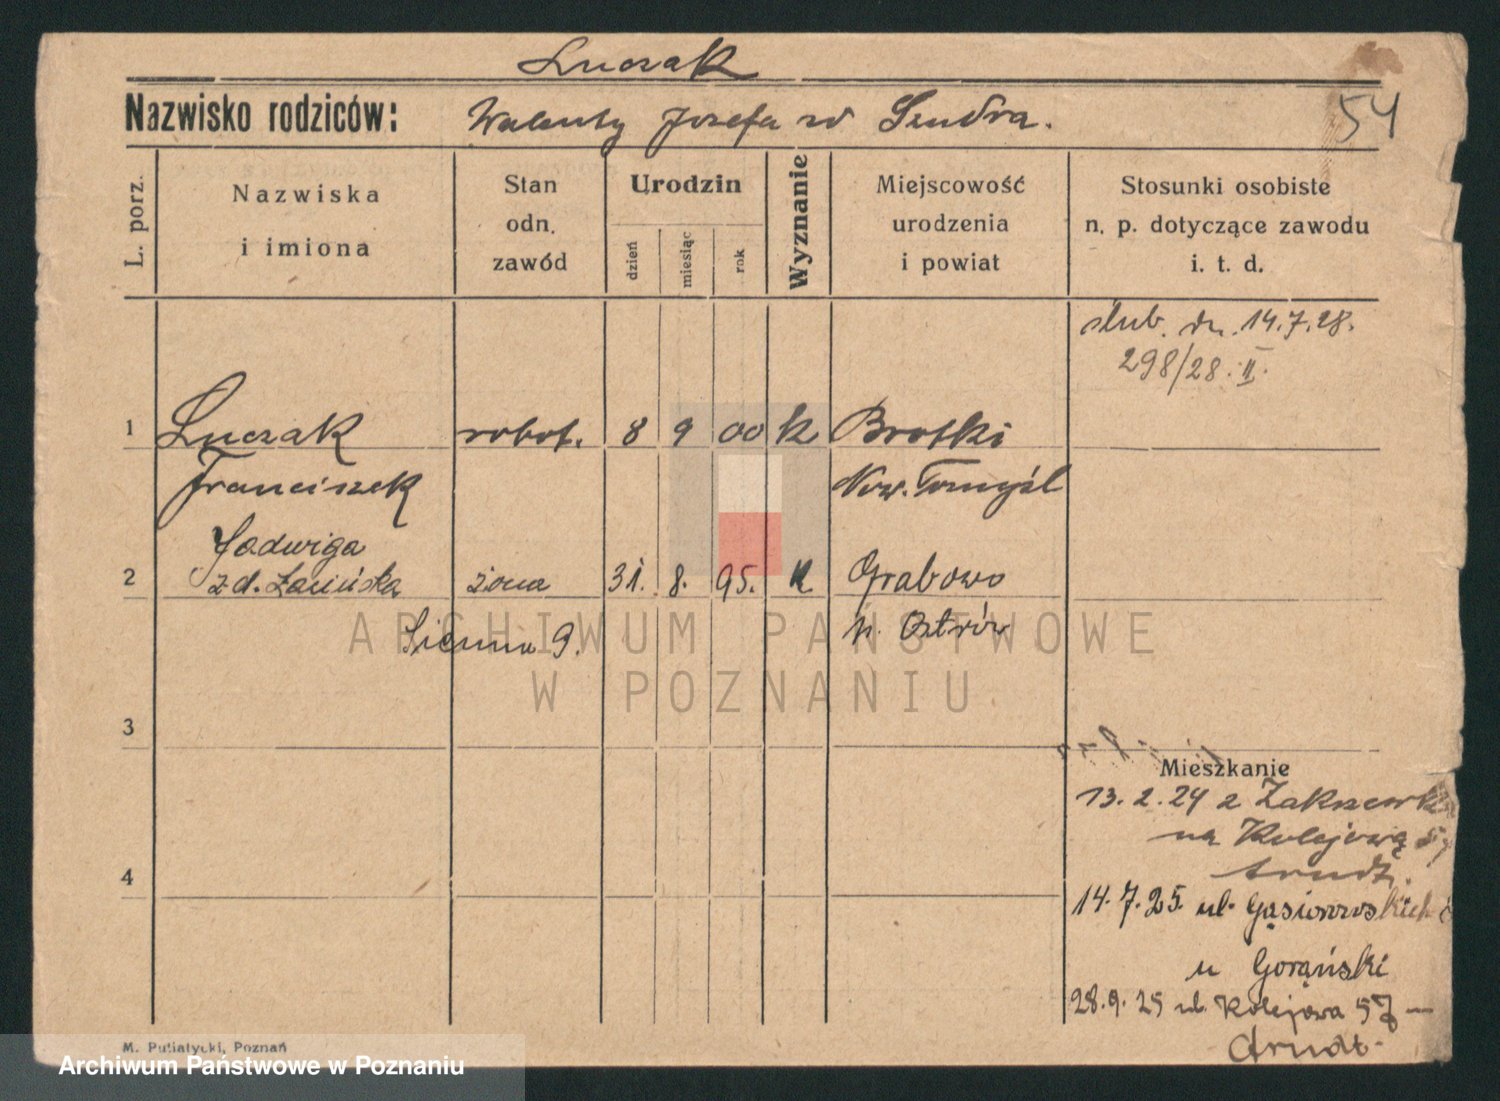 Luczak
Nazwisko rodziców: Walenty Józefa zd Szudra.
54
L. porz.
Nazwiska i imiona
Stan odn. zawód
Urodzin
dzień
miesiąc
rok
Wyznanie
Miejscowość urodzenia i powiat
Stosunki osobiste n. p. dotyczące zawodu i. t. d.
ślub. dn. 14.7.28.
298/28. II.
1 Luczak robot. 8 9 00 k Brotki
Franciszek Now. Tomyśl
Jadwiga
2 zd. żona 31. 8. 95. k. Grabowo
Sienna 9. n. Ostrów
3
Mieszkanie
13.2.24 z Zakrzewk
na Kolejową
Arndt.
4
14.7.25. ul. Gąsiorowskich
u Gorąński
28.9.25 ul. Kolejowa 57 —
Arndt.
M. Putiatycki, Poznań
ARCHIWUM PAŃSTWOWE
W POZNANIU
Archiwum Państwowe w Poznaniu